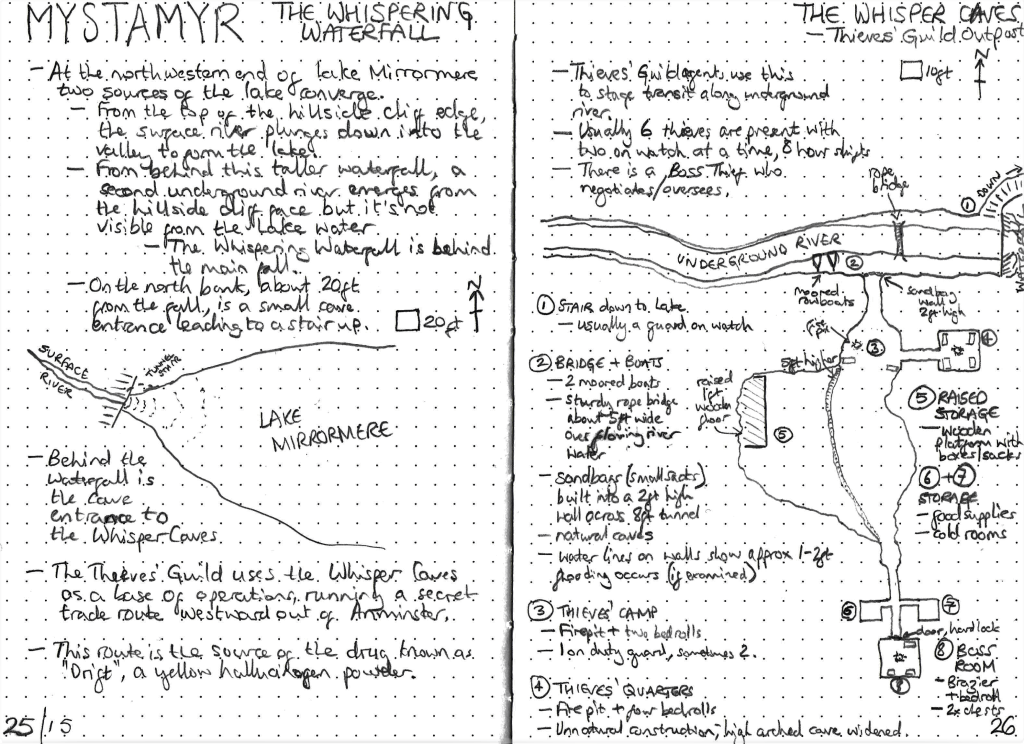 MYSTAMYR
THE WHISPERING
WATERFALL
- At the northwestern end of Lake Mirrormere
two sources of the lake converge.
- From the top of the hillside cliff edge,
the surface river plunges down into the
valley to form the lake.
- From behind this taller waterfall, a
second underground river emerges from
the hillside cliff face but it's not
visible from the Lake water
- The Whispering Waterfall is behind
the main fall.
- On the north bank, about 20ft
from the fall, is a small cave
entrance leading to a stair up.
N
20ft
SURFACE
RIVER
TUNNEL
STAIR
LAKE
MIRRORMERE
- Behind the
waterfall is
the cave
entrance to
the Whisper Caves.
- The Theeves' Guild uses the Whisper Caves
as a base of operations, running a secret
trade route westward out of
- This route is the source of the drug known as
"Drift", a yellow hallucinogen powder.
25/15
THE WHISPER CAVES
- Thieves' Guild Outpost
N
10ft
- Thieves' Guild agents use this
to stage transit along underground
river.
- Usually 6 thieves are present with
two on watch at a time, 8 hour shifts
- There is a Boss Thief who
negotiates/oversees.
rope
bridge
① DOWN
WATERFALL
UNDERGROUND RIVER
②
moored
rowboats
sandbag
wall
2ft high
① STAIR down to Lake
- usually a guard on watch
② BRIDGE + BOATS
- 2 moored boats
- sturdy rope bridge
about 5ft wide
over flowing river
water
- sandbags (small sacks)
built into a 2ft high
wall across 8ft tunnel
- natural caves
- water lines on walls show approx 1-2ft
flooding occurs (if examined)
③ THIEVES' CAMP
- Firepit + two bedrolls
- 1 on duty guard, sometimes 2.
④ THIEVES' QUARTERS
- Fire pit + four bedrolls
- Unnatural construction; high arched cave widened.
fire pit
③
④
5ft higher
raised
1ft
wooden
floor
⑤
⑤ RAISED
STORAGE
- wooden
platform with
boxes/sacks
⑥ + ⑦
STORAGE
- food supplies
- cold rooms
⑥
⑦
door, hard lock
⑧
⑧ BOSS
ROOM
- Brazier
+ bedroll
- 2x chests
26